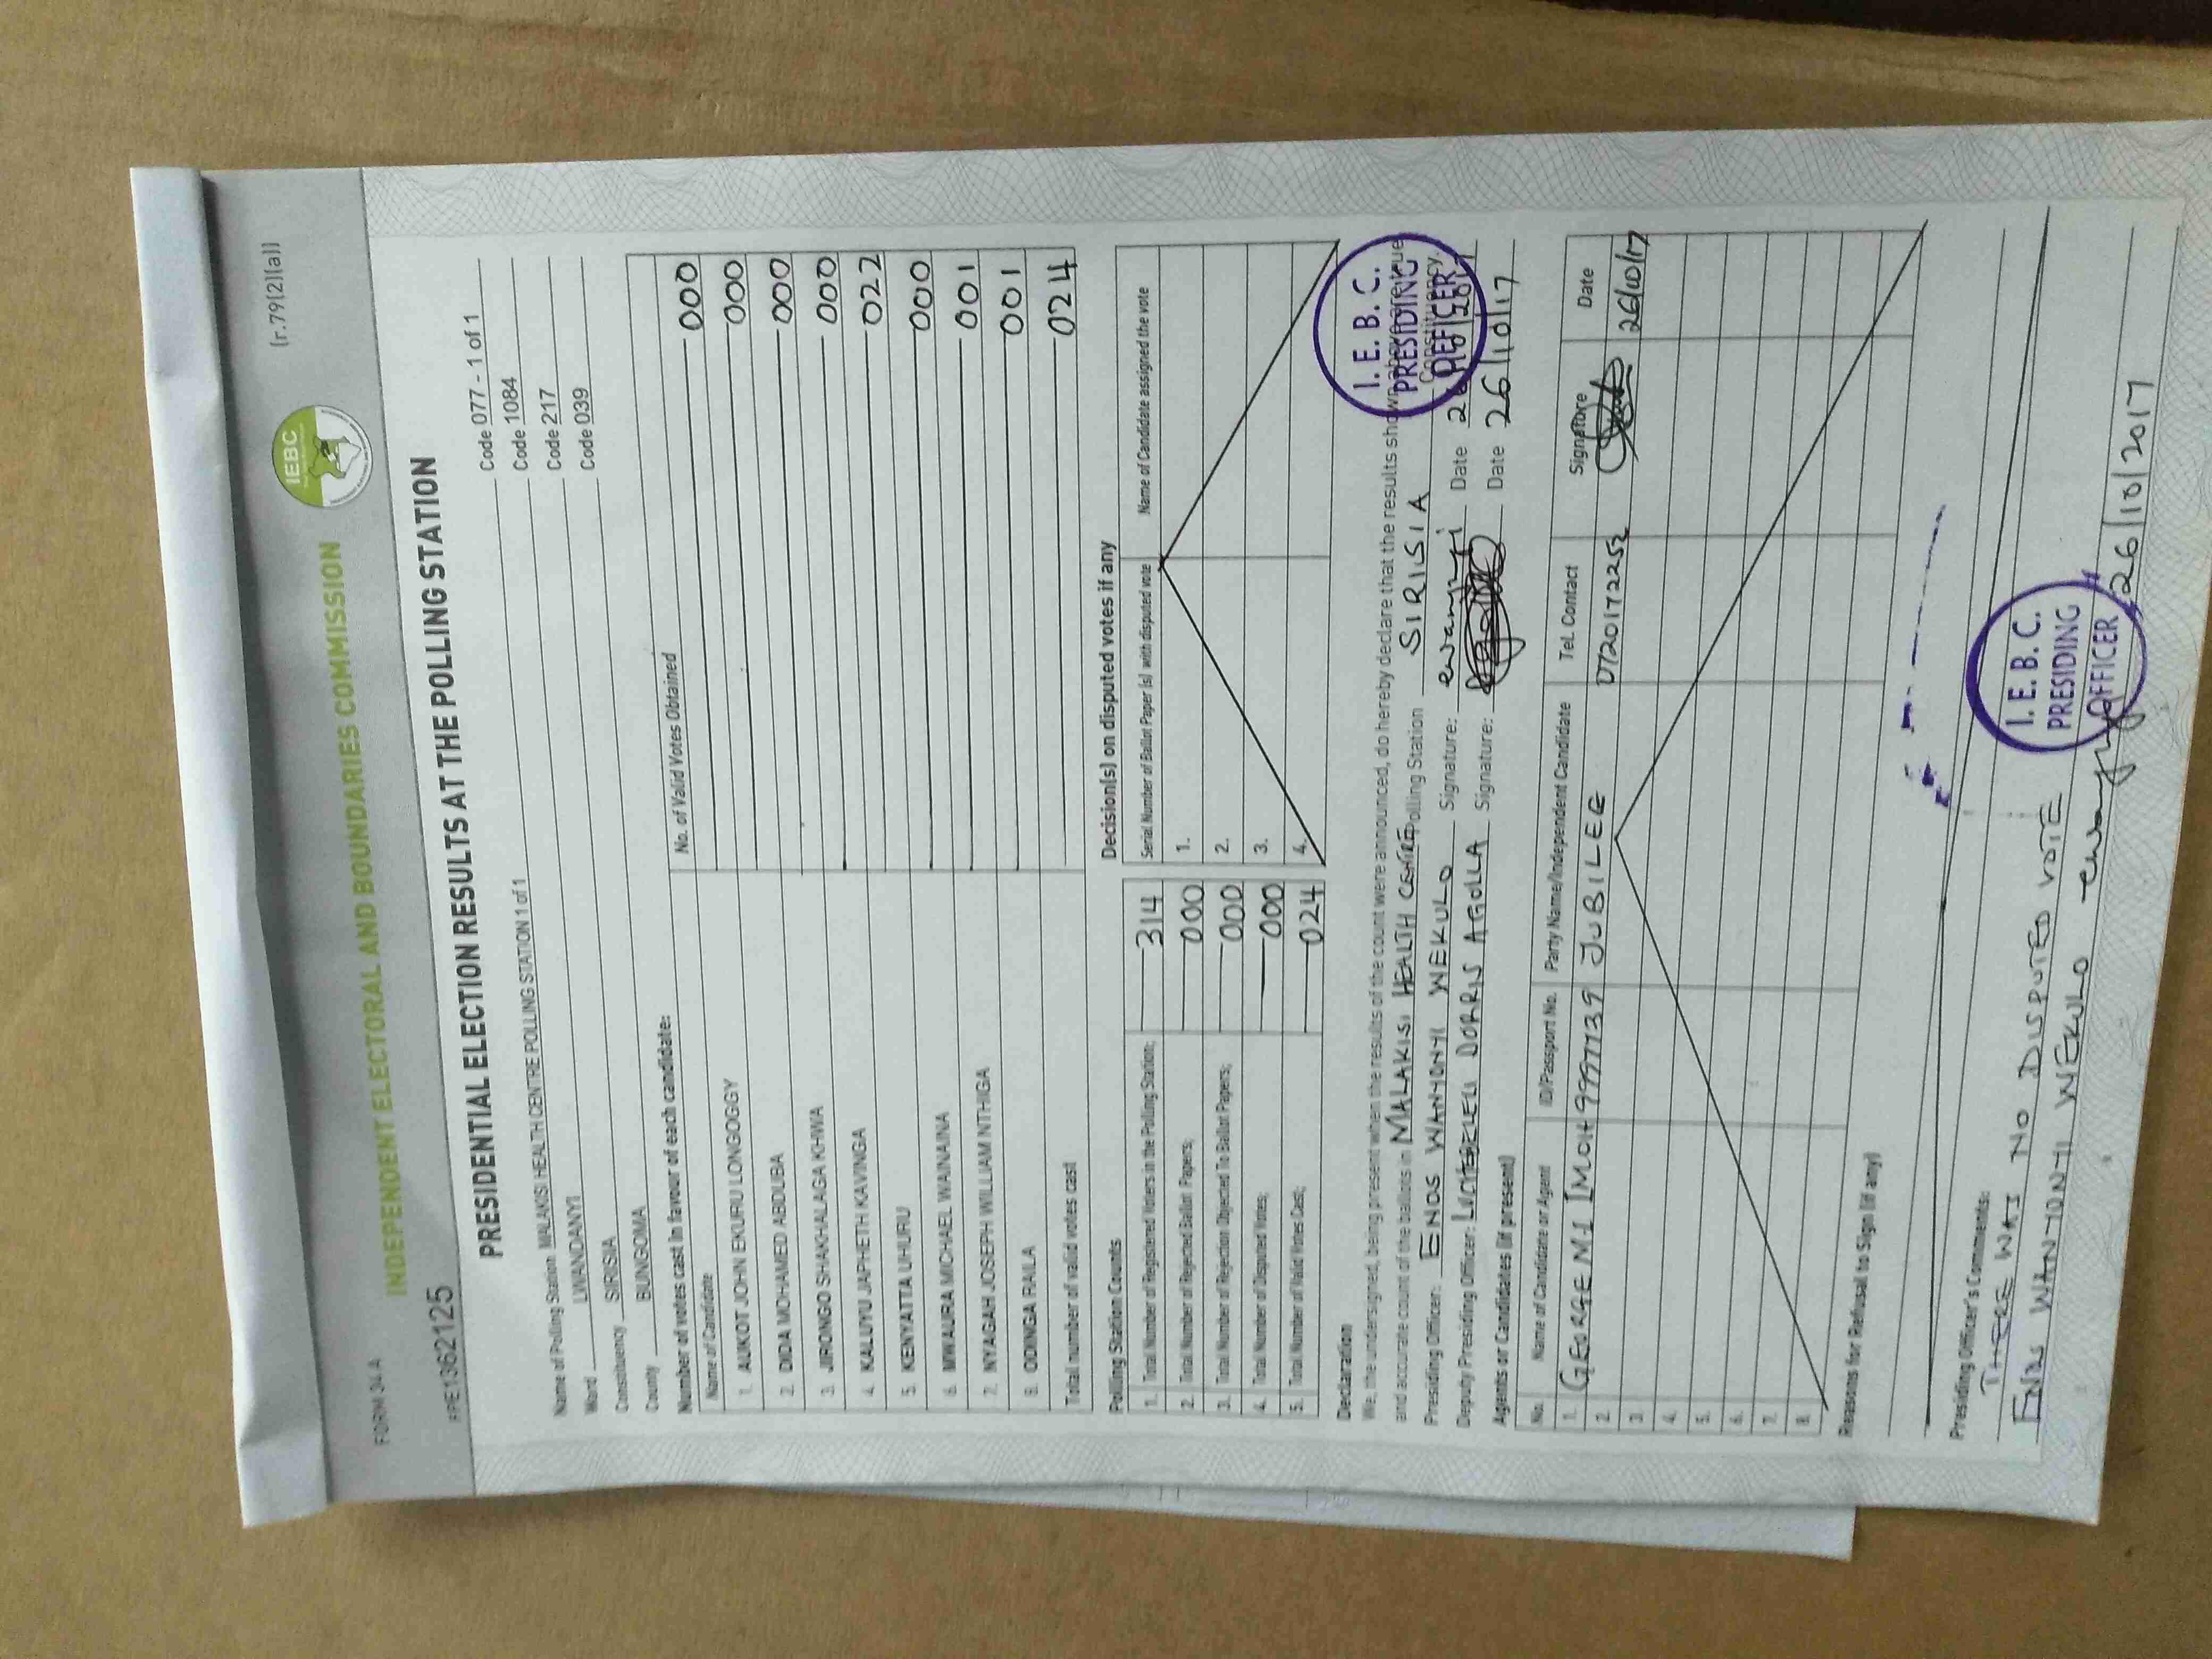 FORM 34A
(r.79(2)(a))
INDEPENDENT ELECTORAL AND BOUNDARIES COMMISSION
IEBC
PRE1362125
PRESIDENTIAL ELECTION RESULTS AT THE POLLING STATION
Name of Polling Station MALAKISI HEALTH CENTRE POLLING STATION 1 of 1 Code 077 - 1 of 1
Ward LWANDANYI Code 1084
Constituency SIRISIA Code 217
County BUNGOMA Code 039
Number of votes cast in favour of each candidate:
Name of Candidate No. of Valid Votes Obtained
1. AUKOT JOHN EKURU LONGOGGY 000
2. DIDA MOHAMED ABDUBA 000
3. JIRONGO SHAKHALAGA KHWA 000
4. KALUYU JAPHETH KAVINGA 000
5. KENYATTA UHURU 022
6. MWAURA MICHAEL WAINAINA 000
7. NYAGAH JOSEPH WILLIAM NTHIGA 001
8. ODINGA RAILA 001
Total number of valid votes cast 024
Polling Station Counts
1. Total Number of Registered Voters in the Polling Station; 314
2. Total Number of Rejected Ballot Papers; 000
3. Total Number of Rejection Objected To Ballot Papers; 000
4. Total Number of Disputed Votes; 000
5. Total Number of Valid Votes Cast; 024
Decision(s) on disputed votes if any
Serial Number of Ballot Paper (s) with disputed vote Name of Candidate assigned the vote
1.
2.
3.
4.
Declaration
We, the undersigned, being present when the results of the count were announced, do hereby declare that the results shown above are true
and accurate count of the ballots in MALAKISI HEALTH CENTRE Polling Station SIRISIA Constituency.
Presiding Officer: ENOS WANYONYI WEKULO Signature: Date 26/10/2017
Deputy Presiding Officer: DORRIS AGOLLA Signature: Date 26/10/17
I. E. B. C.
PRESIDING
OFFICER
Agents or Candidates (if present)
No. Name of Candidate or Agent ID/Passport No. Party Name/Independent Candidate Tel. Contact Signature Date
1. GEORGE M. 9997739 JUBILEE 0720172252 26/10/17
2.
3.
4.
5.
6.
7.
8.
Reasons for Refusal to Sign (if any)
Presiding Officer's Comments:
THERE WAS NO DISPUTED VOTE
ENOS WANYONYI WEKULO 26/10/2017
I. E. B. C.
PRESIDING
OFFICER